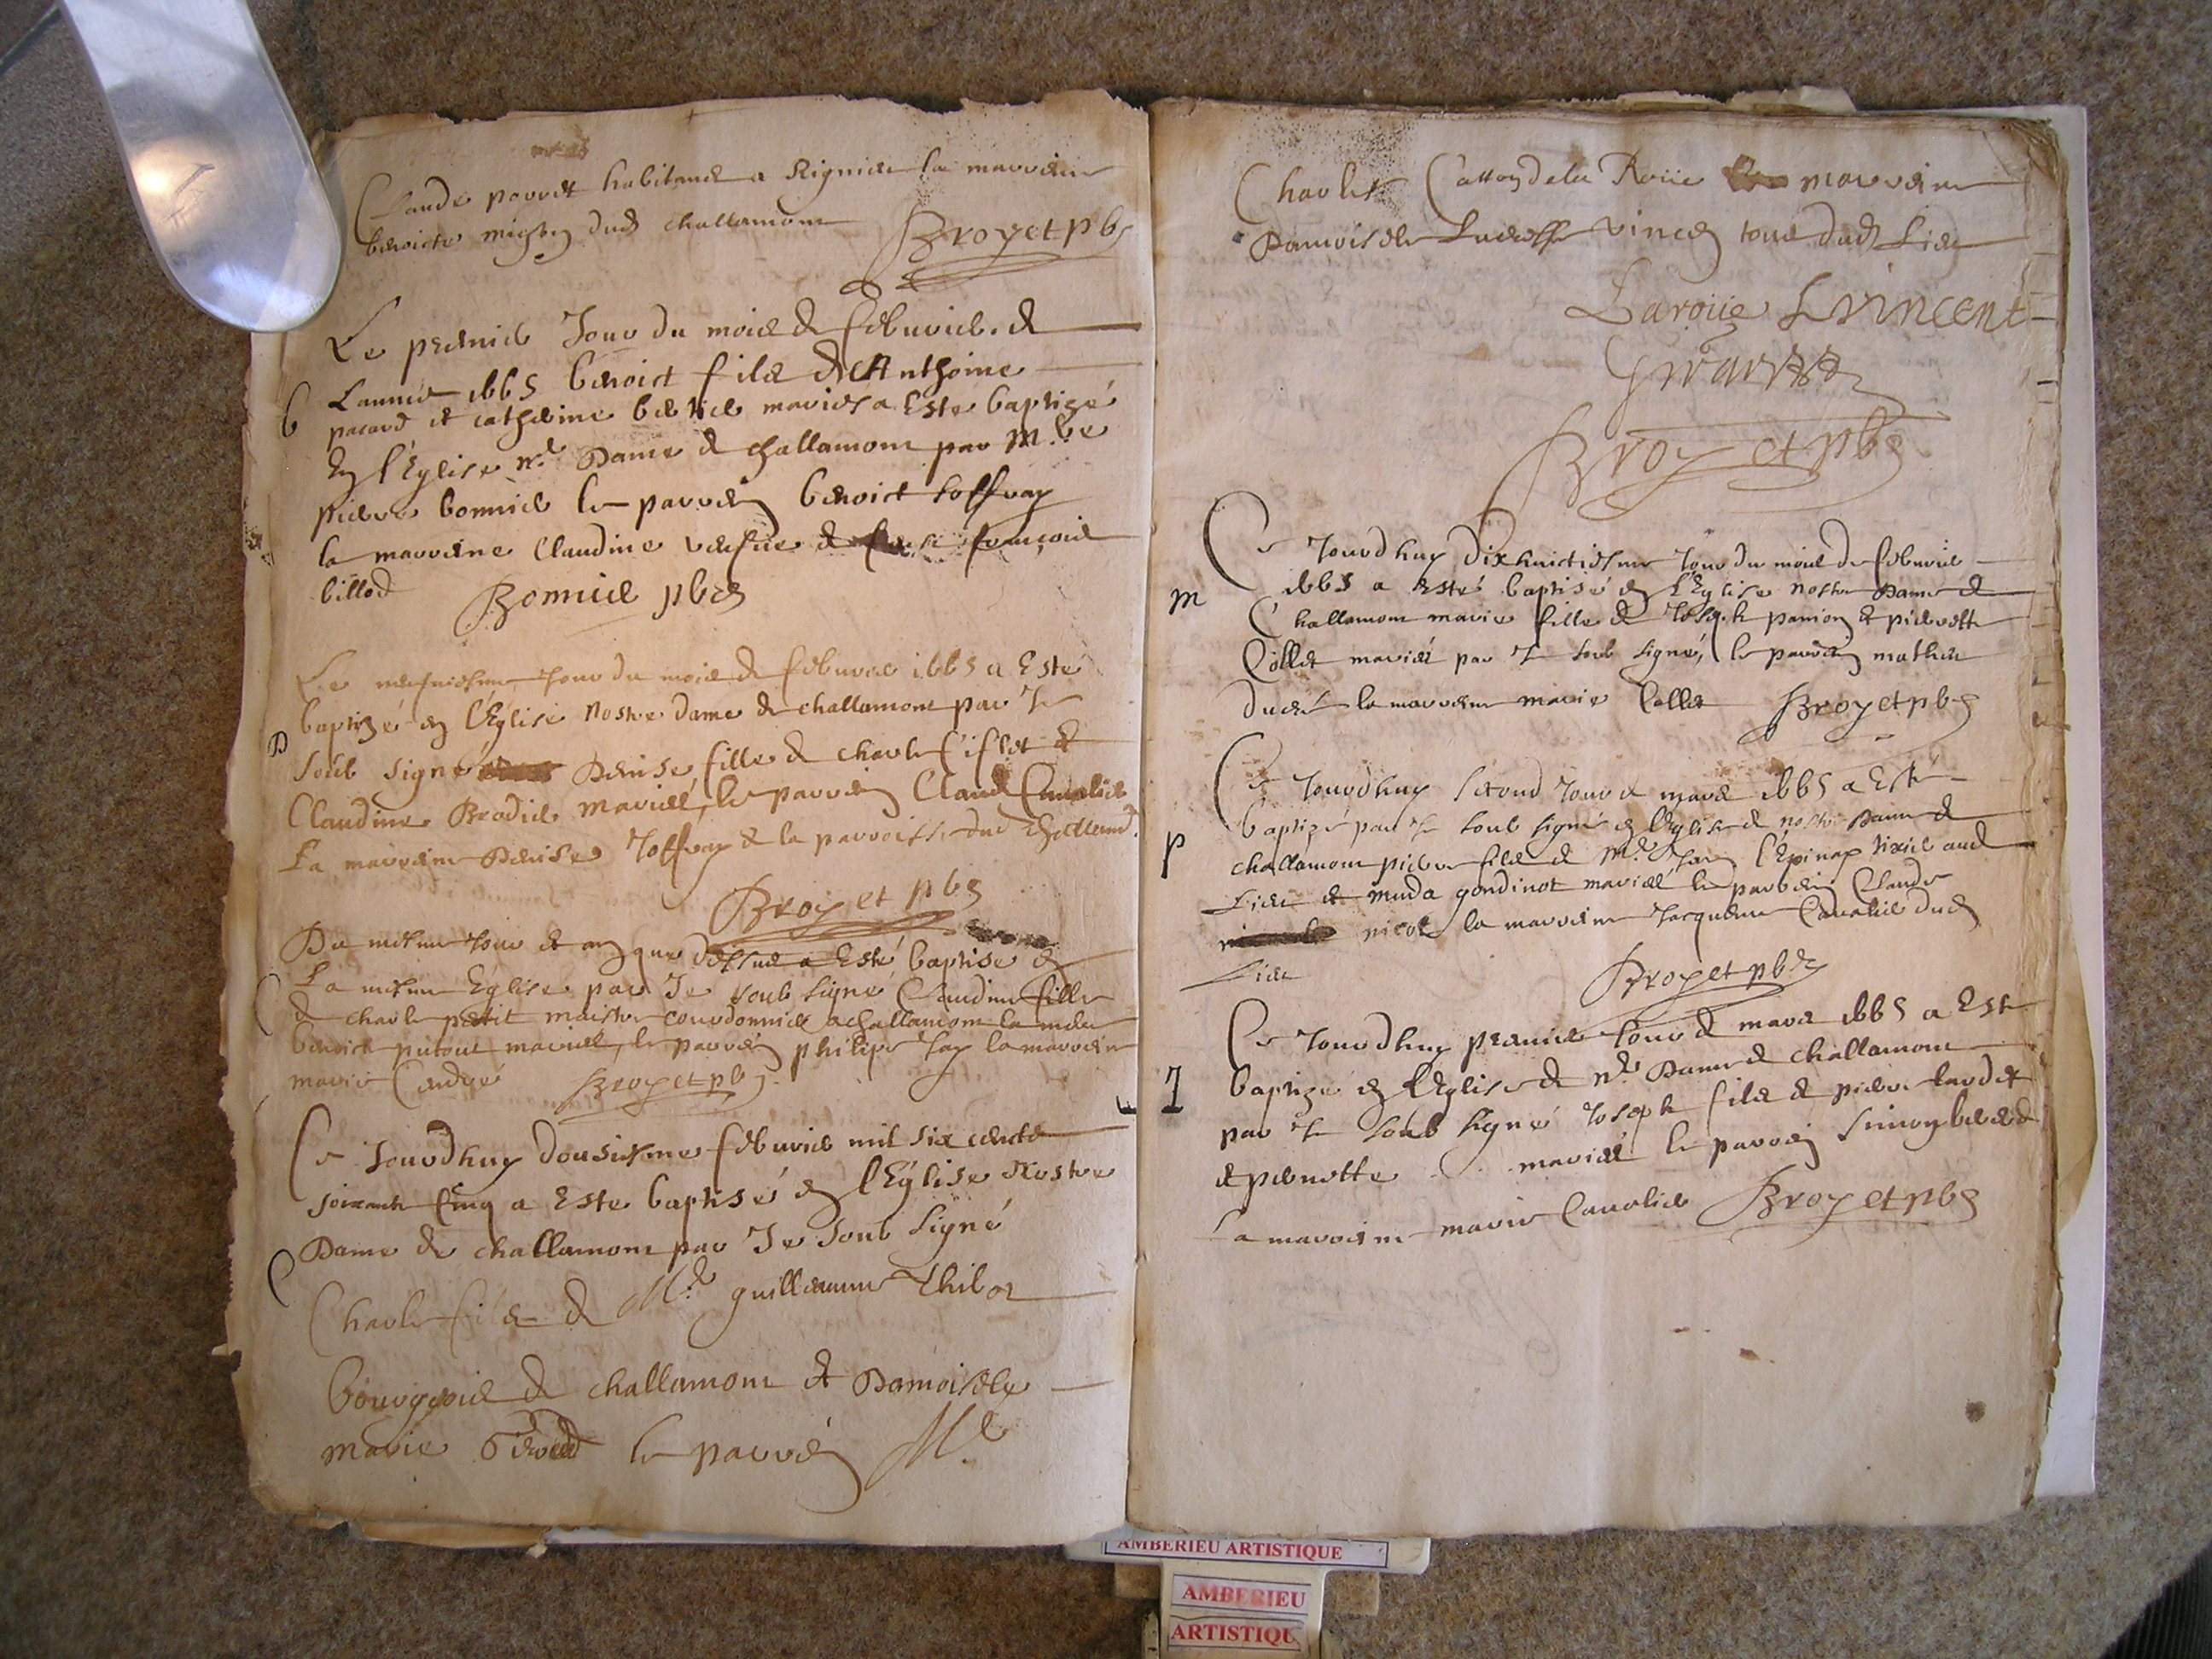 Claude parret habitant a Rignieu la marreine
benoicte mision dud challamont
Broyet pbr
Le premier Jour du mois de febvrier de
Lannée 1665 benoict fils de Anthoine
B
pacard et catherine bertier mariés a Este baptizé
En l'Eglise nre Dame de challamont par Mre
pierre bonnier le parrein benoict Joffray
la marreine Claudine vefue de francois
billod
Bonnier pbre
Le neufuiesme Jour du mois de febvrier 1665 a Esté
baptizé en l'Eglise nostre dame de challamont par Je
D
soub signé Denise fille de charle et
Claudine Brodier mariés, le parrein Claude Cavalier
La marreine Denise Joffray de la parroisse dud Challamt
Broyet pbr
Du mesme Jour et an que dessus a Esté baptisé en
La mesme Eglise par Je soub signé Claudine fille
C
de charle petit maistre courdonnier a challamont la mere
benoicte mariés, le parrein philipe Jay la marreine
marie
Broyet pbr
Ce Jourdhuy dousiesme febvrier mil six cents
soixante cinq a Este baptisé en l'Église Nostre
Dame de challamont par Je soub signé
C
Charle fils de Mre guillaume Thibot
bourgeois de challamont et Damoiselle
marie le parrein Mre
Charles Catton de la Roüe marreine
Damoiselle Lucresse Vincen tous dud Lieu
Laroüe L vincent
Broyet pbr
Ce Jourdhuy Dixhuictiesme Jour du mois de febvrier
M
1665 a Esté baptisé en l'Eglise nostre Dame de
Challamont marie fille de Joseph et pierrette
Collet mariés par Je soub signé, le parrein mathieu
la marreine marie Collet Broyet pbr
Ce Jourdhuy second Jour de mars 1665 a Esté
baptizé par Je soub signé en l'Eglise de nostre Dame de
P
challamont pierre fils de Mre Jean l'Epinay tixier aud
Lieu et gondinot mariés le parrein Claude
nicol la marreine Jacqueme Cavalier dud
Lieu
Broyet pbr
Ce Jourdhuy premier Jour de mars 1665 a Esté
baptizé en l'Eglise de nre Dame de challamont
J
par Je soub signé Joseph fils de pierre
et pernette mariés le parrein Simon
La marreine marie Cavalier Broyet pbr
AMBERIEU ARTISTIQUE
AMBERIEU
ARTISTIQU